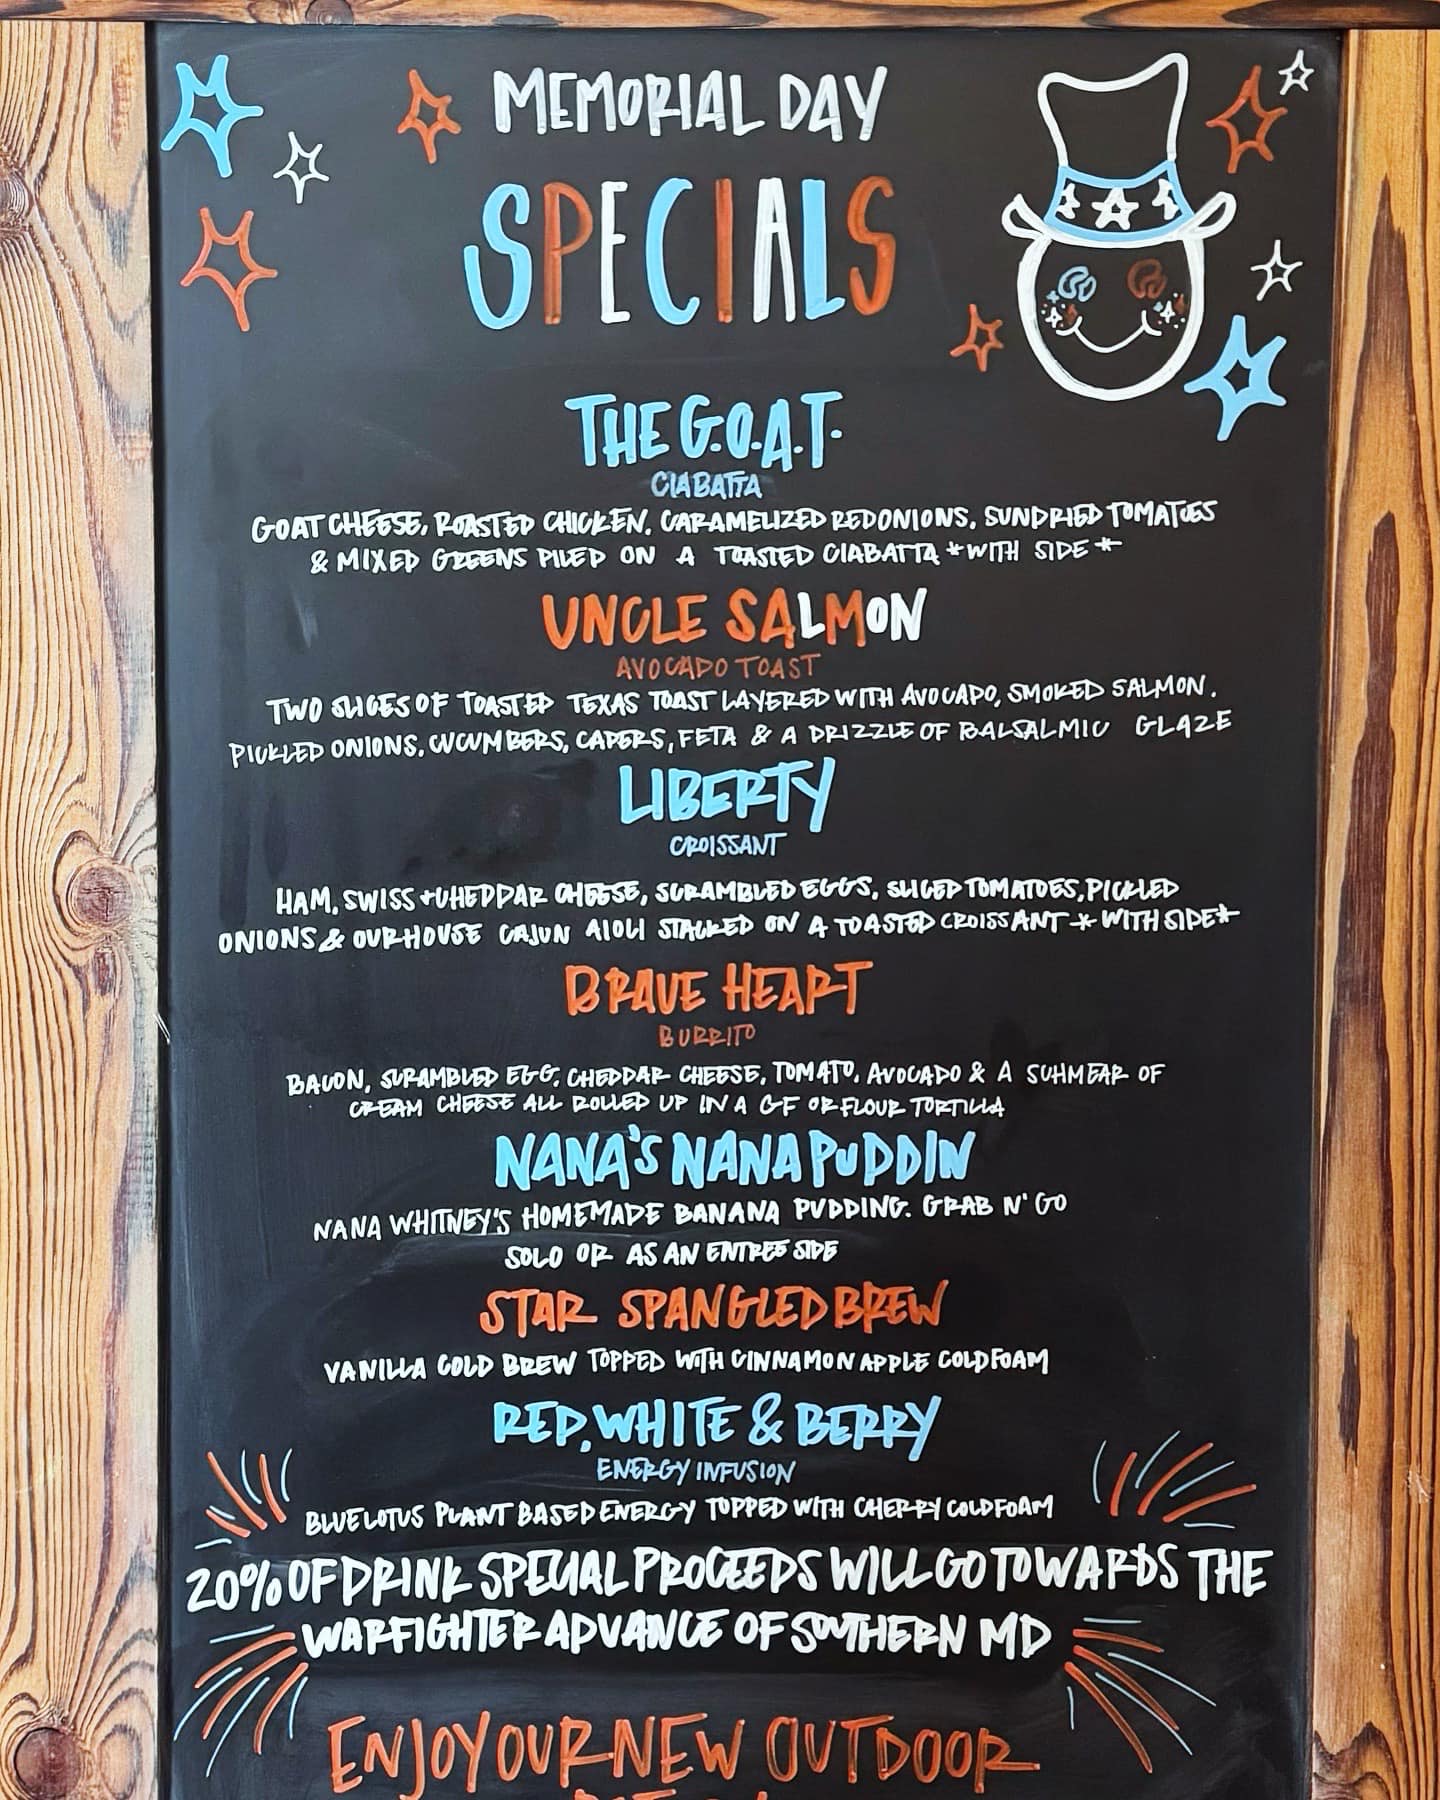 MEMORIAL DAY
SPECIALS
THE G.O.A.T.
CIABATTA
GOAT CHEESE, ROASTED CHICKEN, CARAMELIZED RED ONIONS, SUNDRIED TOMATOES
& MIXED GREENS PILED ON A TOASTED CIABATTA *WITH SIDE*
UNCLE SALMON
AVOCADO TOAST
TWO SLICES OF TOASTED TEXAS TOAST LAYERED WITH AVOCADO, SMOKED SALMON,
PICKLED ONIONS, CUCUMBERS, CAPERS, FETA & A DRIZZLE OF BALSALMIC GLAZE
LIBERTY
CROISSANT
HAM, SWISS + CHEDDAR CHEESE, SCRAMBLED EGGS, SLICED TOMATOES, PICKLED
ONIONS & OUR HOUSE CAJUN AIOLI STACKED ON A TOASTED CROISSANT *WITH SIDE*
BRAVE HEART
BURRITO
BACON, SCRAMBLED EGG, CHEDDAR CHEESE, TOMATO, AVOCADO & A SCHMEAR OF
CREAM CHEESE ALL ROLLED UP IN A GF OR FLOUR TORTILLA
NANA'S NANA PUDDIN
NANA WHITNEY'S HOMEMADE BANANA PUDDING. GRAB N' GO
SOLO OR AS AN ENTREE SIDE
STAR SPANGLED BREW
VANILLA COLD BREW TOPPED WITH CINNAMON APPLE COLD FOAM
RED, WHITE & BERRY
ENERGY INFUSION
BLUE LOTUS PLANT BASED ENERGY TOPPED WITH CHERRY COLD FOAM
20% OF DRINK SPECIAL PROCEEDS WILL GO TOWARDS THE
WARFIGHTER ADVANCE OF SOUTHERN MD
ENJOY OUR NEW OUTDOOR